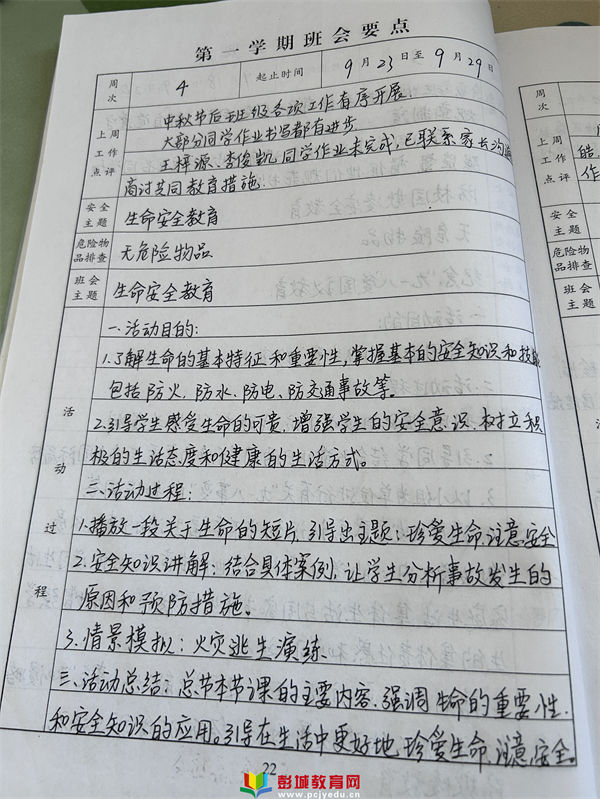 第一学期班会要点
周次 4 起止时间 9月23日至9月29日
上周工作点评
中秋节后班级各项工作有序开展.
大部分同学作业书写都有进步
王梓源、李俊凯同学作业未完成,已联系家长沟通
商讨共同教育措施.
安全主题 生命安全教育
危险物品排查 无危险物品
班会主题 生命安全教育
活动过程
一.活动目的:
1.了解生命的基本特征和重要性,掌握基本的安全知识和技能
包括防火、防水、防电、防交通事故等。
2.引导学生感受生命的可贵,增强学生的安全意识,树立积
极的生活态度和健康的生活方式。
二.活动过程:
1.播放一段关于生命的短片,引导出主题:珍爱生命注意安全
2.安全知识讲解:结合具体案例,让学生分析事故发生的
原因和预防措施。
3.情景模拟:火灾逃生演练.
三.活动总结:总节本节课的主要内容.强调生命的重要性.
和安全知识的应用。引导在生活中更好地珍爱生命,注意安全。
22
彭城教育网
www.pcjyedu.cn
安全主题
危险物品排查
班会主题